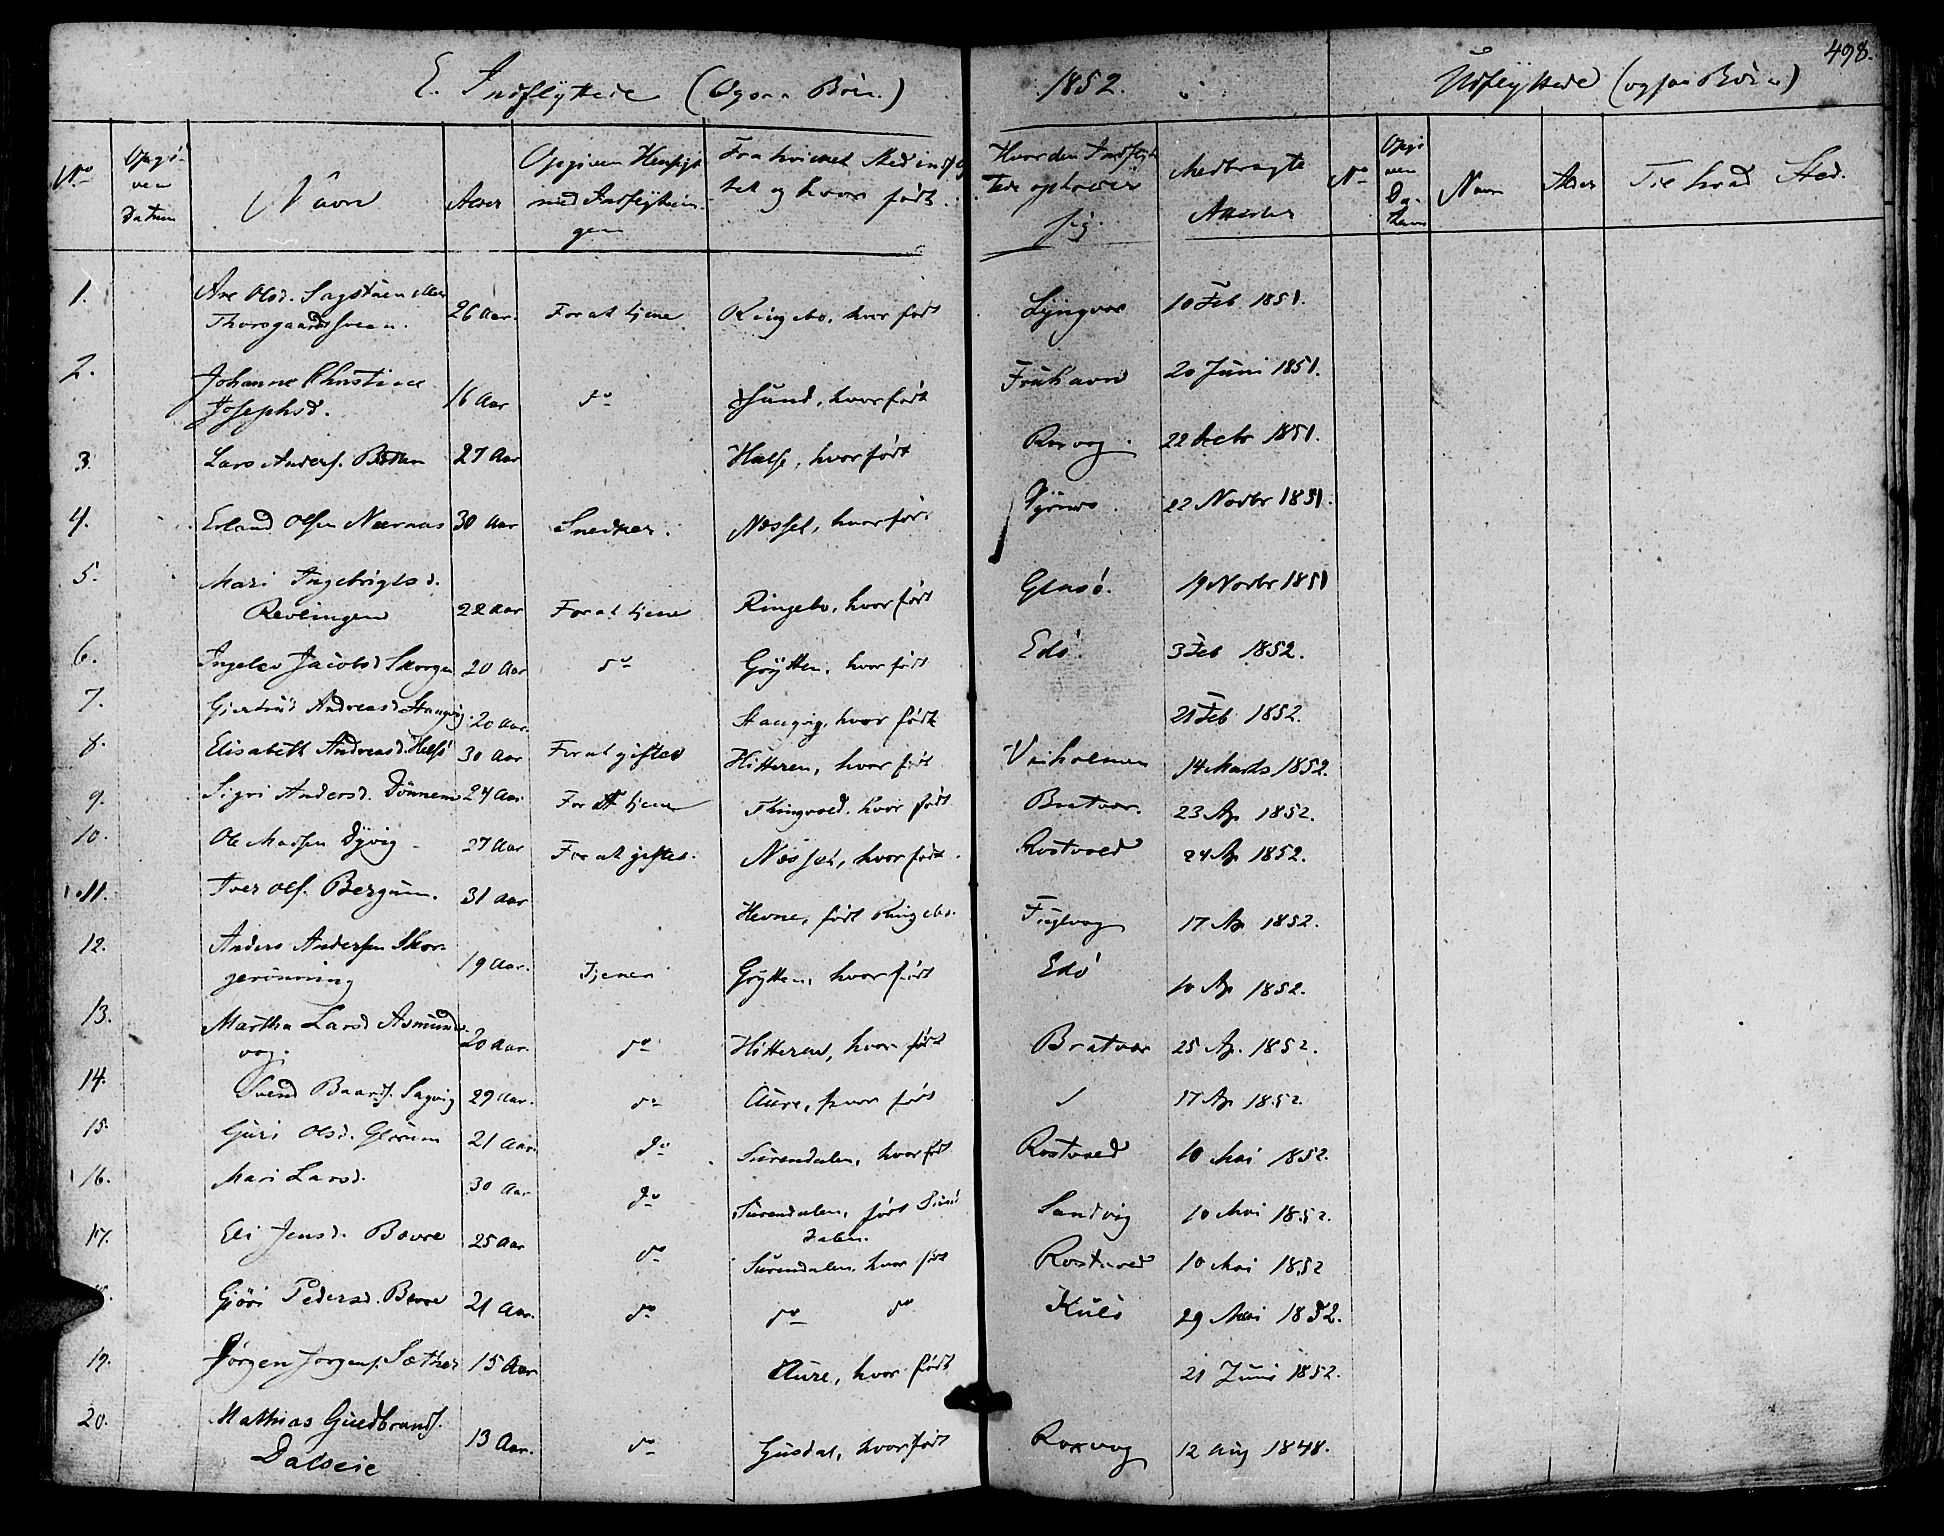 498.
E. Indflyttede (Ogsaa Børn.) 1852. Udflyttede (ogsaa Børn)
No Opgiven Datum Navn Alder Opgiven Hensigt med Indflytningen Fra hvilket Sted indflyttet og hvor født. Hvor den Indflyttede opholder sig. Medbragte Attester No Opgiven Datum Navn Alder Til hvad Sted.
1. Ane Olsd. Sagstuen eller
Thorsgaardssveen. 26 Aar. For at tjene Ringebo, hvor født Lyngvær 10 Feb 1851.
2. Johanne Christine
Josephsd. 16 Aar do Sund, hvor født Fruhavn 20 Juni 1851.
3. Lars Anders. 27 Aar Halse, hvor født Roxvog. 22 Decbr 1851.
4. Erland Olsen Nærnæs 30 Aar Snedker. Nesset, hvor før Dyrnæs. 22 Novbr 1851.
5. Mari Ingebrigtsd.
Revlingen 22 Aar For at tjene Ringebo, hvor født 19 Novbr 1851
6. Ingebor Jacobsd Skorgen 20 Aar do Grytten, hvor født Edø. 3 Feb 1852.
7. Gjertrud Andreasd Stangvig 20 Aar. Stangvig, hvor født 21 Feb 1852.
8. Elisabeth Andreasd. 30 Aar For at giftes Hitteren, hvor født Veiholmen 14 Marts 1852.
9. Sigri Andersd. Dønnem 24 Aar For at tjene Thingvold, hvor født Bratvær. 23 Ap 1852.
10. Ole Madsen Dyvig 27 Aar For at giftes. Nesset, hvor født. Rostvold 24 Ap 1852.
11. Iver Ols. Bergum. 31 Aar Hevne, født Ringebo. Fuglvog 17 Ap 1852.
12. Anders Andersen Skor-
gerønning 19 Aar. Tjener Grytten, hvor født Edø 10 Ap 1852.
13. Martha Larsd Asmunds
vog. 20 Aar. do Hitteren, hvor født Bratvær 25 Ap. 1852.
14. Svend Baards. Sagvig 29 Aar. do Aure, hvor født 17 Ap 1852.
15. Guri Olsd. Glærum 21 Aar. do Surendalen, hvor født Rostvold 10 Mai 1852.
16. Mari Larsd. 30 Aar do Surendalen, født Sund
dalen. Sandvig 10 Mai 1852.
17. Eli Jensd. Bævre 25 Aar do Surendalen, hvor født Rostvold 10 Mai 1852
Gjøri Pedersd. Bævre 21 Aar. do do do Kulø 29 Mai 1852.
19. Jørgen Jørgens. Sæther 15 Aar Aure, hvor født 21 Juni 1852.
20. Mathias Gudbrands.
Dalseie 13 Aar. do Gusdal, hvor født Roxvog 12 Aug 1848.